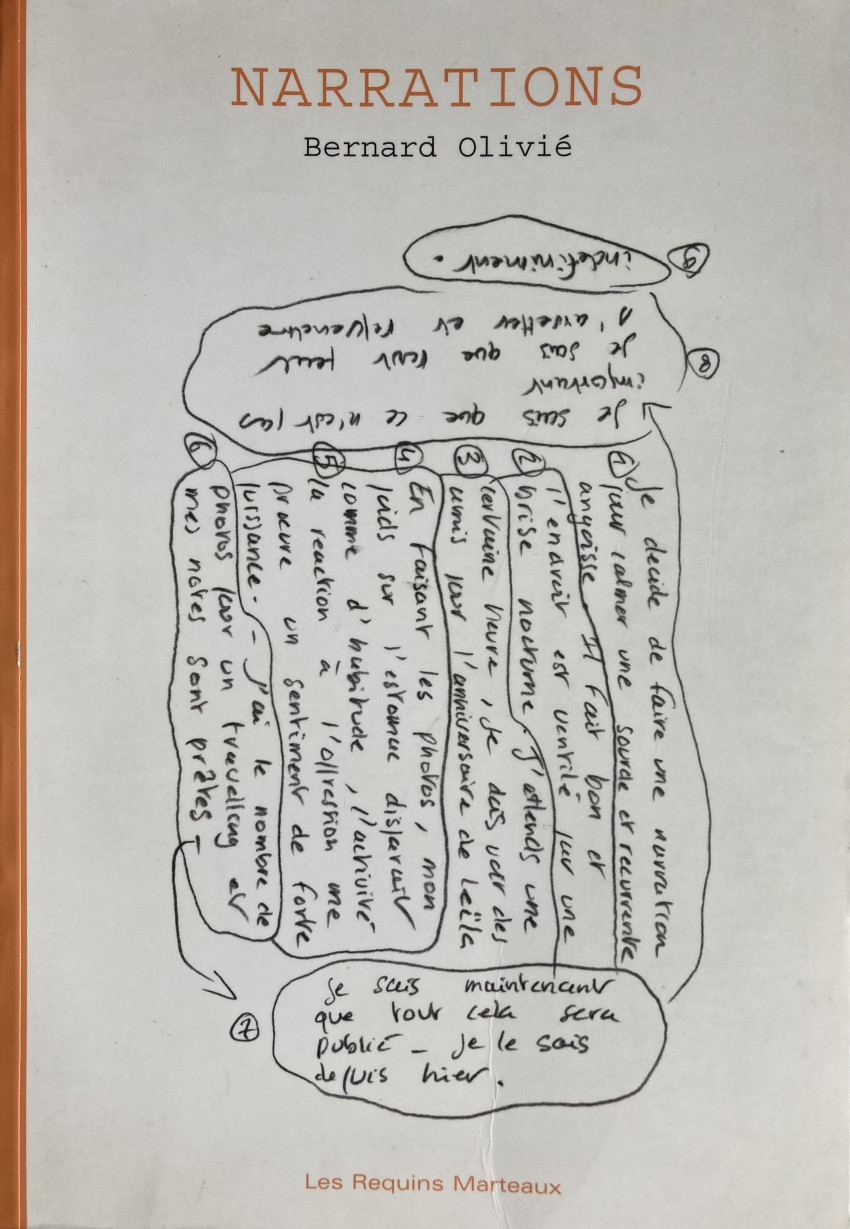 NARRATIONS
Bernard Olivié
1
Je decide de faire une narration
pour calmer une sourde et recurrente
angoisse. Il fait bon et
2
l'endroit est ventilé par une
brise nocturne. J'attends une
3
certaine heure, je dois voir des
amis pour l'anniversaire de Leïla
4
En faisant les photos, mon
poids sur l'estomac disparait
5
comme d'habitude, l'activité
la reaction à l'oppression me
procure un sentiment de forte
puissance. - J'ai le nombre de
6
photos pour un travelling et
mes notes sont prêtes -
7
je sais maintenant
que tout cela sera
publié - je le sais
depuis hier.
8
Je sais que ce n'est pas
important
Je sais que tout peut
s'arrêter et reprendre
9
indefiniment.
Les Requins Marteaux